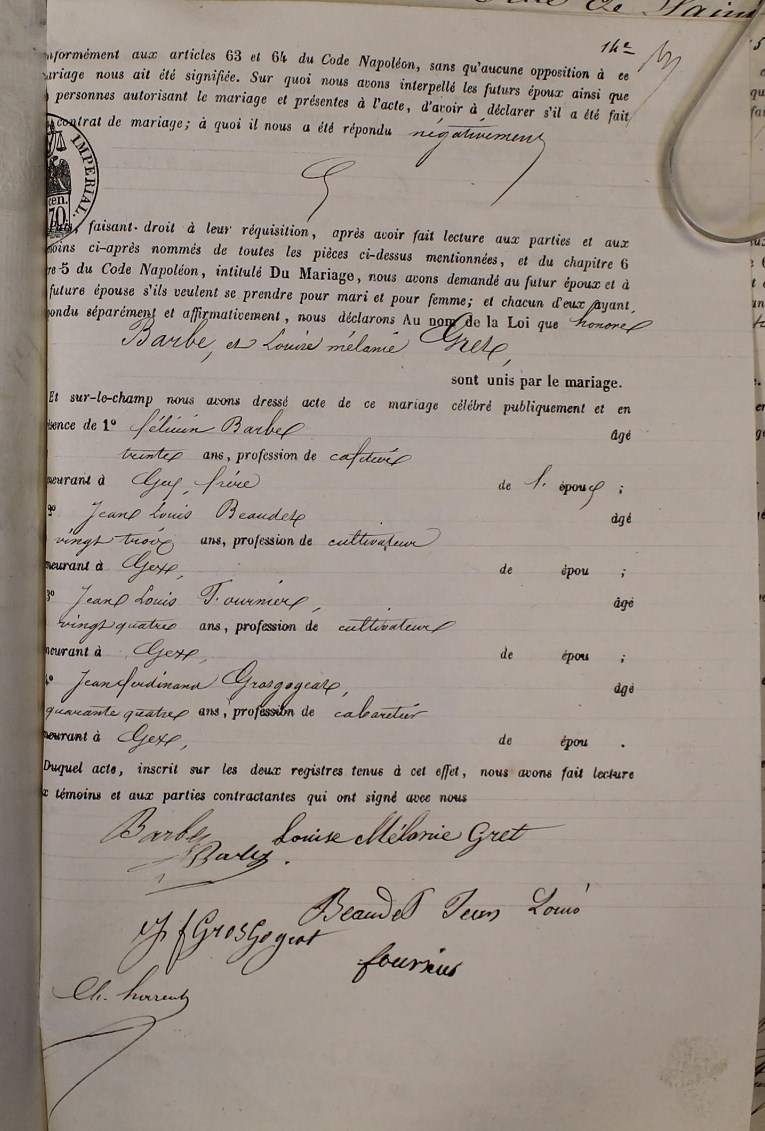 de
14e
nformément aux articles 63 et 64 du Code Napoléon, sans qu'aucune opposition à ce
ariage nous ait été signifiée. Sur quoi nous avons interpellé les futurs époux ainsi que
personnes autorisant le mariage et présentes à l'acte, d'avoir à déclarer s'il a été fait
contrat de mariage; à quoi il nous a été répondu négativement
IMPERIAL.
cen.
70
faisant-droit à leur réquisition, après avoir fait lecture aux parties et aux
moins ci-après nommés de toutes les pièces ci-dessus mentionnées, et du chapitre 6
re 5 du Code Napoléon, intitulé Du Mariage, nous avons demandé au futur époux et à
future épouse s'ils veulent se prendre pour mari et pour femme; et chacun d'eux ayant
ondu séparément et affirmativement, nous déclarons Au nom de la Loi que honoré
Barbe, et Louise mélanie Gret,
sont unis par le mariage.
Et sur-le-champ nous avons dressé acte de ce mariage célébré publiquement et en
sence de 1º félicien Barbe âgé
trente ans, profession de cafetier
meurant à Gex, frère de l' époux ;
2º Jean Louis Beaudet âgé
vingt trois ans, profession de cultivateur
meurant à Gex, de épou ;
3º Jean Louis Fournier, âgé
vingt quatre ans, profession de cultivateur
meurant à Gex, de épou ;
4º Jean ferdinand Grosgogeat, âgé
quarante quatre ans, profession de cabaretier
meurant à Gex, de épou .
Duquel acte, inscrit sur les deux registres tenus à cet effet, nous avons fait lecture
x témoins et aux parties contractantes qui ont signé avec nous
Barbe Louise Mélanie Gret
Barbe
Beaudet Jean Louis
j f GrosGogeat
fournier
Ch.